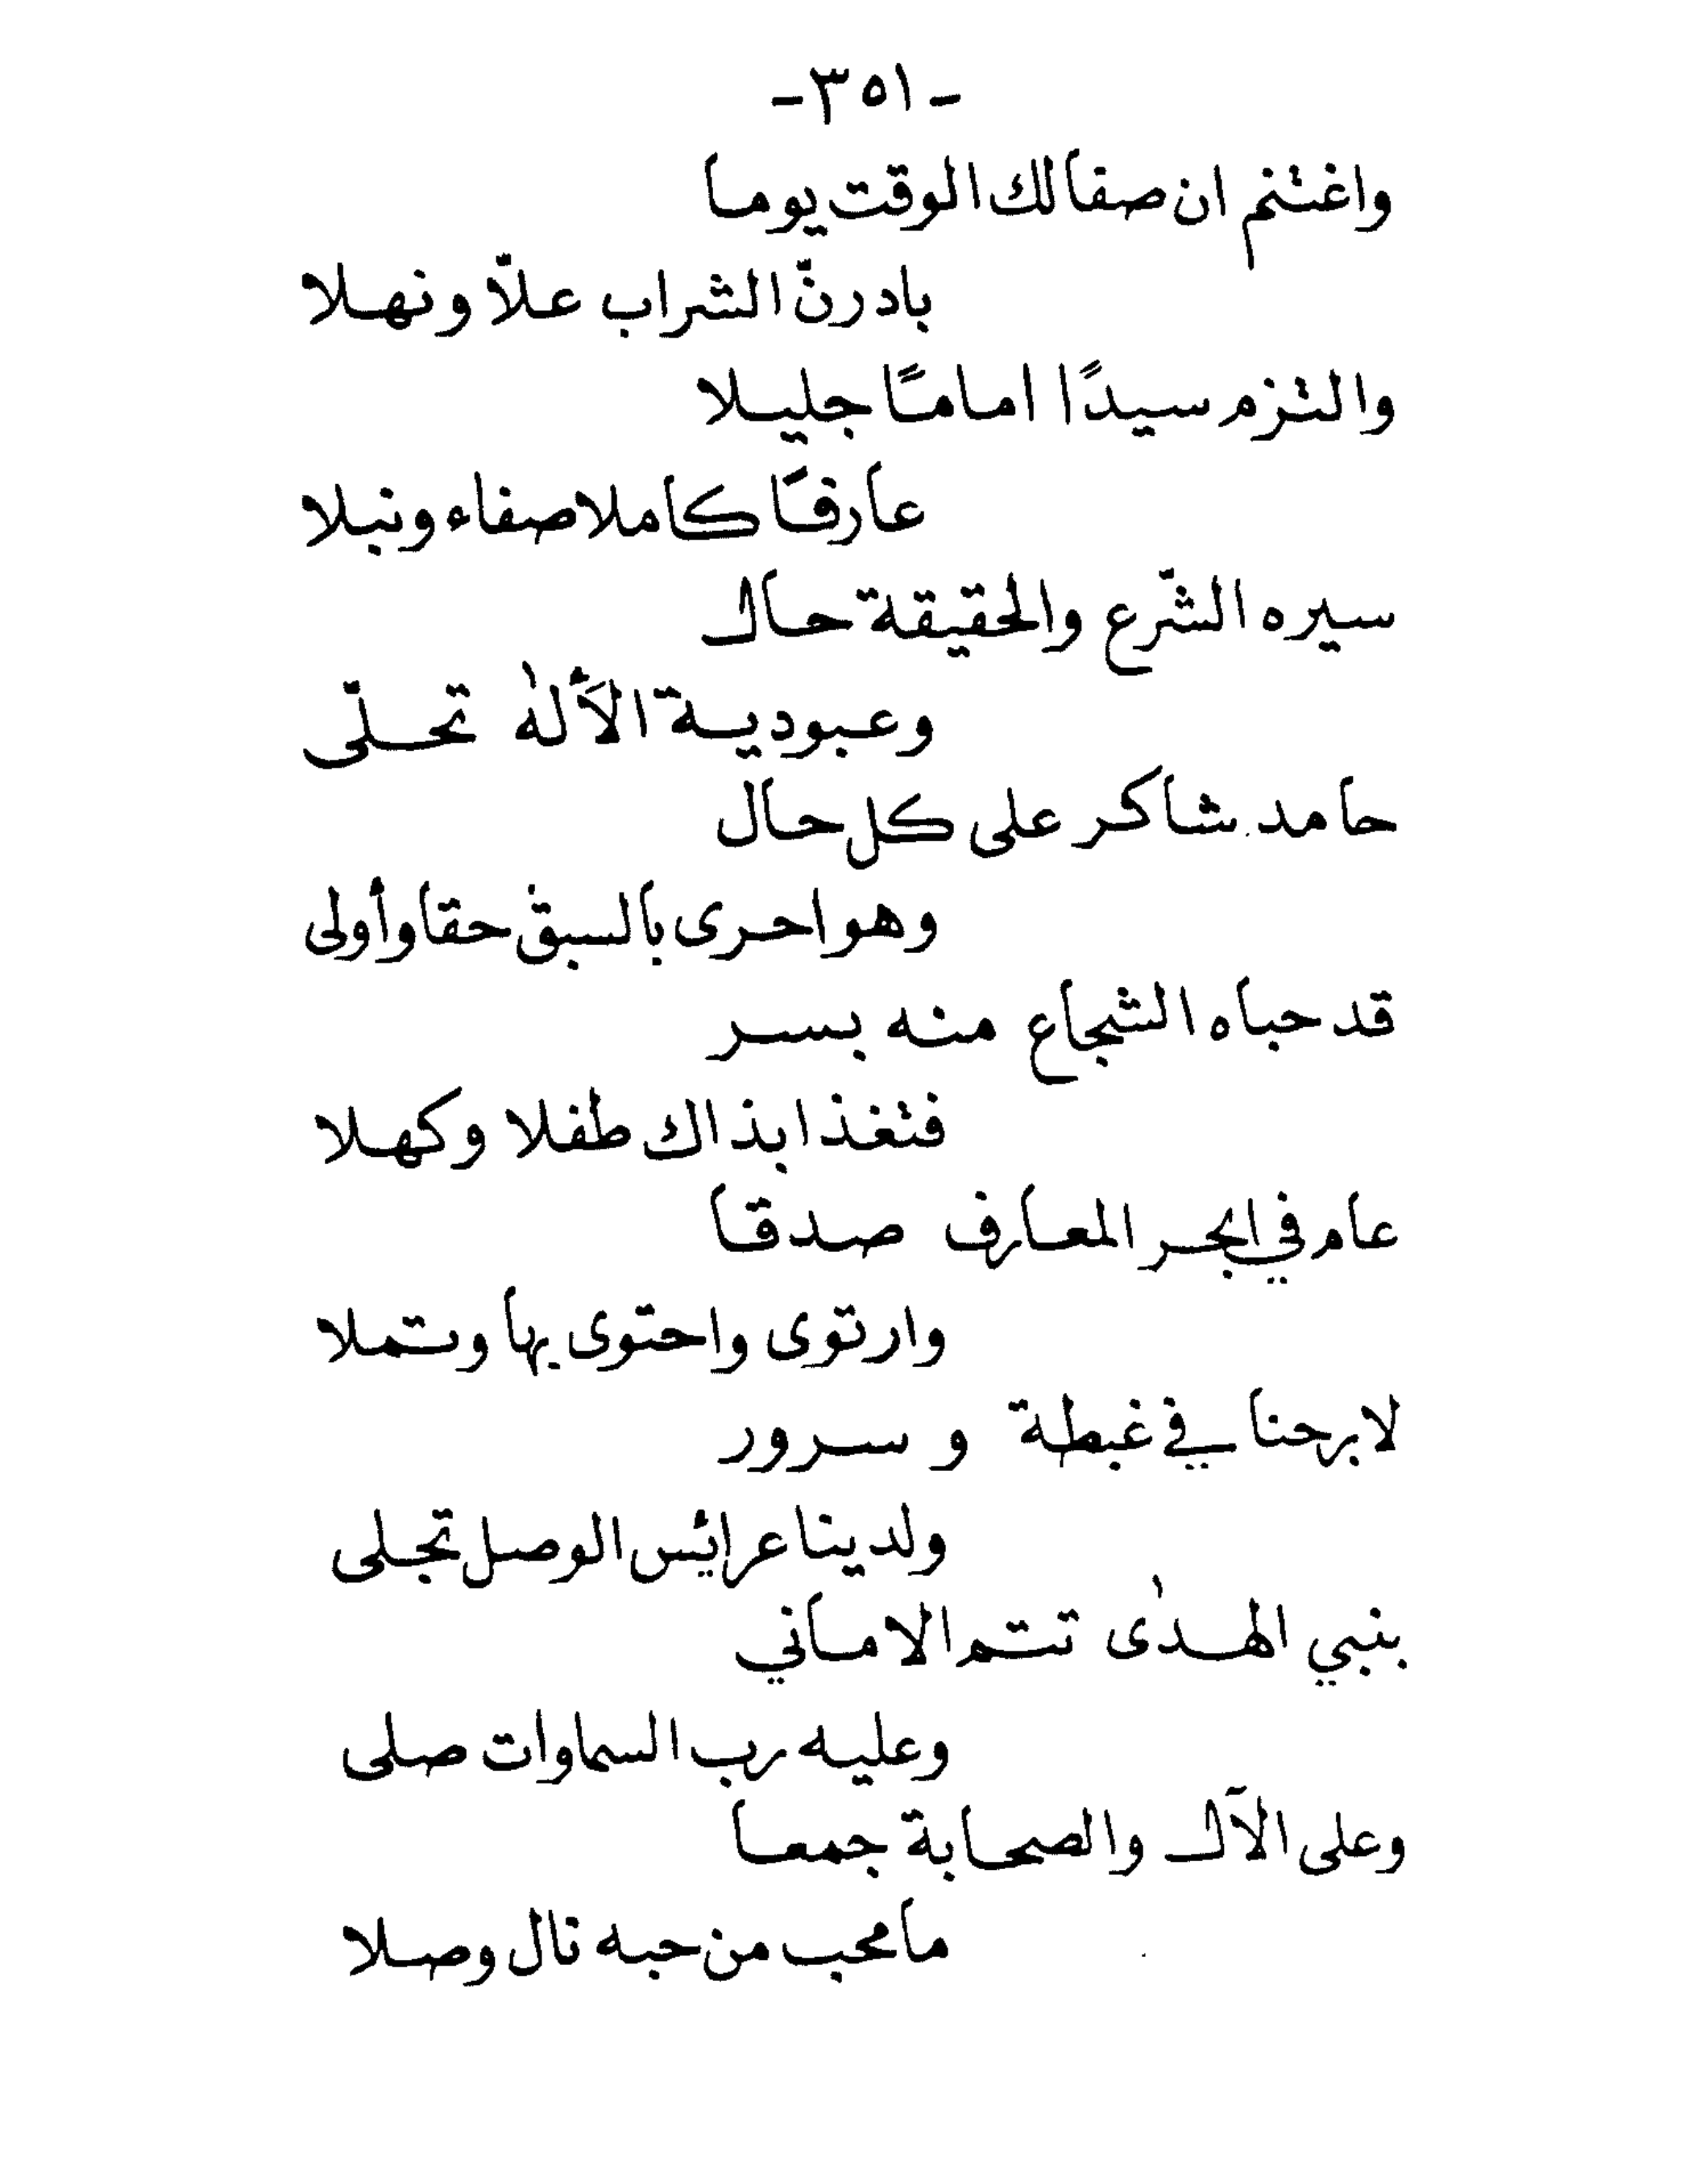 -٣٥١-
واغتنم ان صفالك الوقت يوما
بادرنّ الشراب علّا ونهلا
والتزم سيدًا امامًا جليلا
عارفًا كاملا صفاء ونبلا
سيره الشّرع والحقيقة حال
وعبودية الأله تحلّى
حامد شاكر على كل حال
وهو احرى بالسبق حقا وأولى
قد حباه الشجاع منه بسر
فتغذا بذاك طفلا وكهلا
عام في ابحر المعارف صدقا
وارتوى واحتوى بها وتملا
لا برحنا في غبطة وسرور
ولدينا عرائس الوصل تجلى
بنبي الهدٰى تتم الاماني
وعليه رب السماوات صلى
وعلى الآل والصحابة جمعا
ما محب من حبه نال وصلا